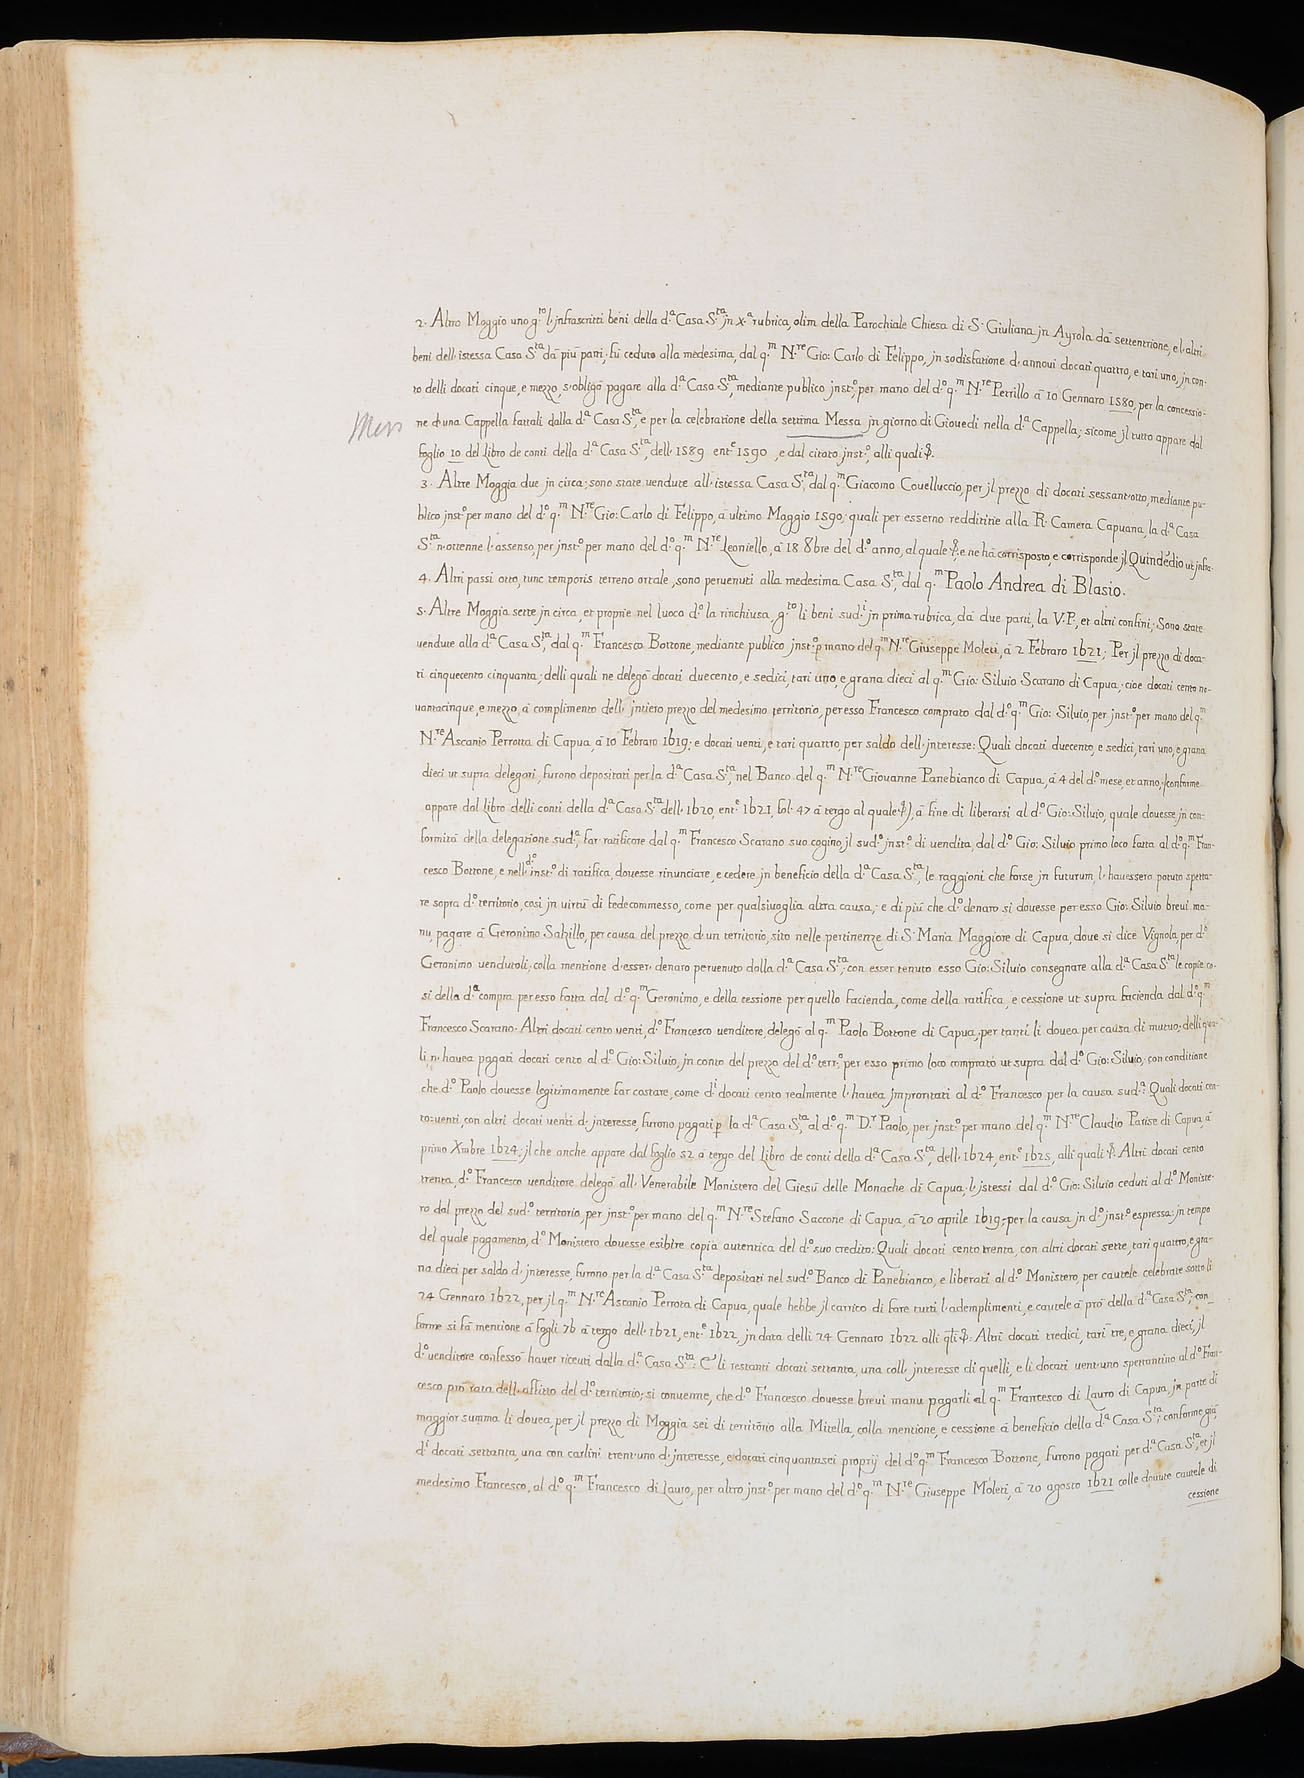 2. Altro Moggio uno g.to l'jnfrascritti beni della d.a Casa S.ta jn x.a rubrica, olim della Parochiale Chiesa di S. Giuliana jn Ayrola dà settentrione, e l'altri
beni dell'istessa Casa S.ta dà più parti; fù ceduto alla medesima, dal q.m N.re Gio: Carlo di Felippo, jn sodisfatione d'annoui docati quattro, e tarì uno, jn con-
to delli docati cinque, e mezzo, s'obligò pagare alla d.a Casa S.ta, mediante publico jnst.o, per mano del d.o q.m N.re Petrillo à 10 Gennaro 1580, per la concessio-
Mess ne d'una Cappella fattali dalla d.a Casa S.ta, e per la celebratione della settima Messa jn giorno di Giouedi nella d.a Cappella; sicome jl tutto appare dal
foglio 10 del Libro de conti della d.a Casa S.ta, dell'1589 ent.e 1590, e dal citato jnst.o, alli quali
3. Altre Moggia due jn circa; sono state uendute all'istessa Casa S.ta, dal q.m Giacomo Couelluccio, per jl prezzo di docati sessant'otto, mediante pu-
blico jnst.o per mano del d.o q.m N.re Gio: Carlo di Felippo, à ultimo Maggio 1590; quali per esserno reddititie alla R. Camera Capuana, la d.a Casa
S.ta n'ottenne l'assenso, per jnst.o per mano del d.o q.m N.re Leoniello, à 18 8bre del d.o anno, al quale e ne hà corrisposto, e corrisponde jl Quindédio ut jnfra.
4. Altri passi otto, tunc temporis terreno ortale, sono peruenuti alla medesima Casa S.ta, dal q.m Paolo Andrea di Blasio.
5. Altre Moggia sette jn circa, et proprie nel luoco d.o la rinchiusa, g.to li beni sud.i jn prima rubrica, dà due parti, la V.P., et altri confini; Sono state
uendute alla d.a Casa S.ta, dal q.m Francesco Bottone, mediante publico jnst.o p mano del q.m N.re Giuseppe Moleti, à 2 Febraro 1621; Per jl prezzo di doca-
ti cinquecento cinquanta; delli quali ne delegò docati duecento, e sedici, tarì uno, e grana dieci al q.m Gio: Siluio Scarano di Capua; cioè docati cento no-
uantacinque, e mezzo, à complimento dell'jntiero prezzo del medesimo territorio, per esso Francesco comprato dal d.o q.m Gio: Siluio, per jnst.o per mano del q.m
N.re Ascanio Perrotta di Capua, à 10 Febraro 1619; e docati uenti, e tarì quattro, per saldo dell'jnteresse: Quali docati duecento, e sedici, tarì uno, e grana
dieci ut supra delegati, furono depositati per la d.a Casa S.ta, nel Banco del q.m N.re Giouanne Panebianco di Capua, à 4 del d.o mese, et anno; (conforme
appare dal Libro delli conti della d.a Casa S.ta dell'1620, ent.e 1621, fol. 47 à tergo al quale), à fine di liberarsi al d.o Gio: Siluio, quale douesse, jn con-
formità della delegatione sud.a, far ratificare dal q.m Francesco Scarano suo cogino, jl sud.o jnst.o di uendita, dal d.o Gio: Siluio primo loco fatta al d.o q.m Fran-
cesco Bottone, e nell'd.o inst.o di ratifica, douesse rinunciare, e cedere jn beneficio della d.a Casa S.ta, le raggioni che forse jn futurum, l'hauessero potuto spetta-
re sopra d.o territorio, così jn uirtù di fedecommesso, come per qualsiuoglia altra causa; e di più che d.o denaro si douesse per esso Gio: Siluio breui ma-
nu, pagare à Geronimo Salzillo, per causa del prezzo d'un territorio, sito nelle pertinenze di S. Maria Maggiore di Capua, doue si dice Vignola, per d.o
Geronimo uendutoli; colla mentione d'esser denaro peruenuto dalla d.a Casa S.ta; con esser tenuto esso Gio: Siluio consegnare alla d.a Casa S.ta le copie co-
si della d.a compra per esso fatta dal d.o q.m Geronimo, e della cessione per quello facienda, come della ratifica, e cessione ut supra facienda dal d.o q.m
Francesco Scarano. Altri docati cento uenti, d.o Francesco uenditore, delegò al q.m Paolo Bottone di Capua; per tanti li douea per causa di mutuo; delli qua-
li n'hauea pagati docati cento al d.o Gio: Siluio, jn conto del prezzo del d.o terr.o, per esso primo loco comprato ut supra dal d.o Gio: Siluio; con conditione
che d.o Paolo douesse legitimamente far costare, come d.i docati cento realmente l'hauea jmprontati al d.o Francesco per la causa sud.a: Quali docati cen-
to uenti, con altri docati uenti d'jnteresse, furono pagati p la d.a Casa S.ta, al d.o q.m D.r Paolo, per jnst.o per mano del q.m N.re Claudio Parise di Capua à
primo Xmbre 1624; jl che anche appare dal foglio 52 à tergo del Libro de conti della d.a Casa S.ta, dell'1624, ent.e 1625, alli quali Altri docati cento
trenta, d.o Francesco uenditore delegò all'Venerabile Monistero del Giesù delle Monache di Capua, l'jstessi dal d.o Gio: Siluio ceduti al d.o Moniste-
ro dal prezzo del sud.o territorio, per jnst.o per mano del q.m N.re Stefano Saccone di Capua, à 20 aprile 1619; per la causa jn d.o jnst.o espressa: jn tempo
del quale pagamento, d.o Monistero douesse esibire copia autentica del d.o suo credito: Quali docati cento trenta, con altri docati sette, tarì quattro, e gra-
na dieci per saldo d'jnteresse, furono per la d.a Casa S.ta depositati nel sud.o Banco di Panebianco, e liberati al d.o Monistero, per cautele celebrate sotto li
24 Gennaro 1622, per jl q.m N.re Ascanio Perrotta di Capua, quale hebbe jl carrico di fare tutti l'ademplimenti, e cautele à prò della d.a Casa S.ta; con_
forme si fà mentione à fogli 76 à tergo dell'1621, ent.e 1622, jn data delli 24 Gennaro 1622 alli q.li Altri docati tredici, tarì tre, e grana dieci, jl
d.o uenditore confessò hauer riceuti dalla d.a Casa S.ta: E li restanti docati settanta, una coll'jnteresse di quelli, e li docati uent'uno spettantino al d.o Fran-
cesco prò rata dell'affitto del d.o territorio; si conuenne, che d.o Francesco douesse breui manu pagarli al q.m Francesco di Lauro di Capua, jn parte di
maggior summa li douea, per jl prezzo di Moggia sei di territorio alla Mitella, colla mentione, e cessione à beneficio della d.a Casa S.ta; conforme già,
d.i docati settanta, una con carlini trent'uno d'jnteresse, e docati cinquantasei proprij del d.o q.m Francesco Bottone, furono pagati per d.a Casa S.ta, et jl
medesimo Francesco, al d.o q.m Francesco di Lauro, per altro jnst.o per mano del d.o q.m N.re Giuseppe Moleti, à 20 agosto 1621 colle douute cautele di
cessione